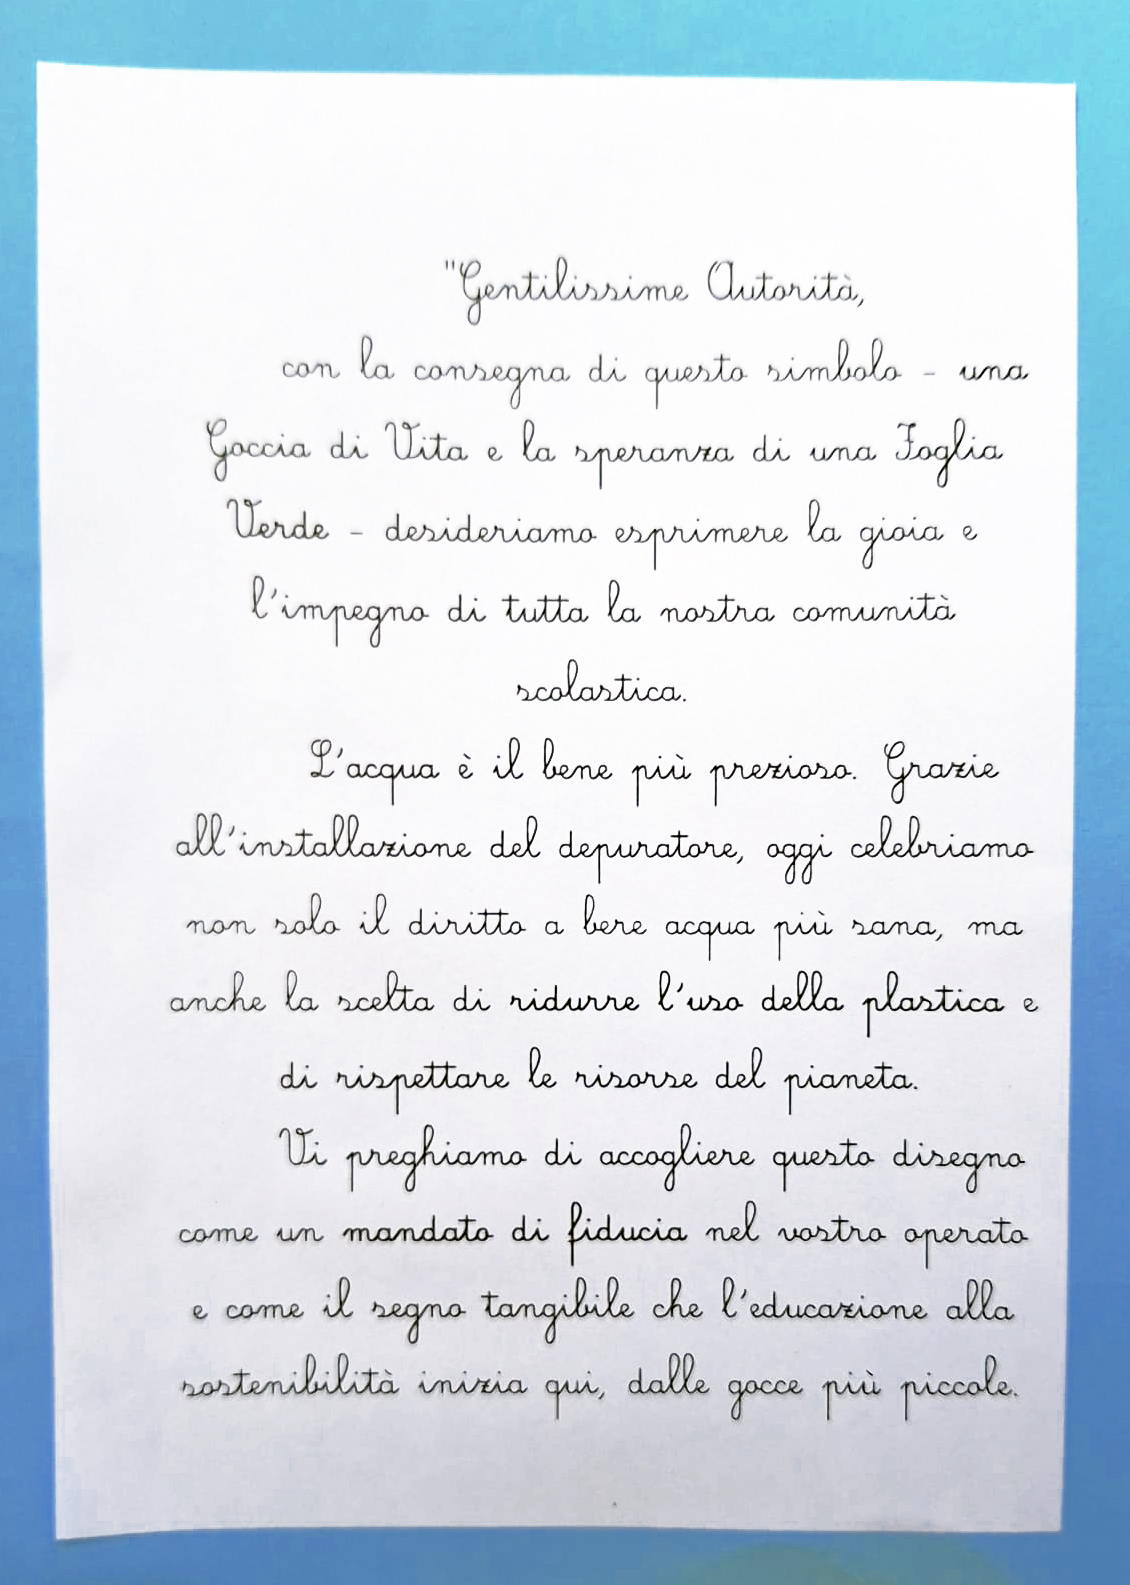 "Gentilissime Autorità,
con la consegna di questo simbolo - una
Goccia di Vita e la speranza di una Foglia
Verde - desideriamo esprimere la gioia e
l'impegno di tutta la nostra comunità
scolastica.
L'acqua è il bene più prezioso. Grazie
all'installazione del depuratore, oggi celebriamo
non solo il diritto a bere acqua più sana, ma
anche la scelta di ridurre l'uso della plastica e
di rispettare le risorse del pianeta.
Vi preghiamo di accogliere questo disegno
come un mandato di fiducia nel vostro operato
e come il segno tangibile che l'educazione alla
sostenibilità inizia qui, dalle gocce più piccole.